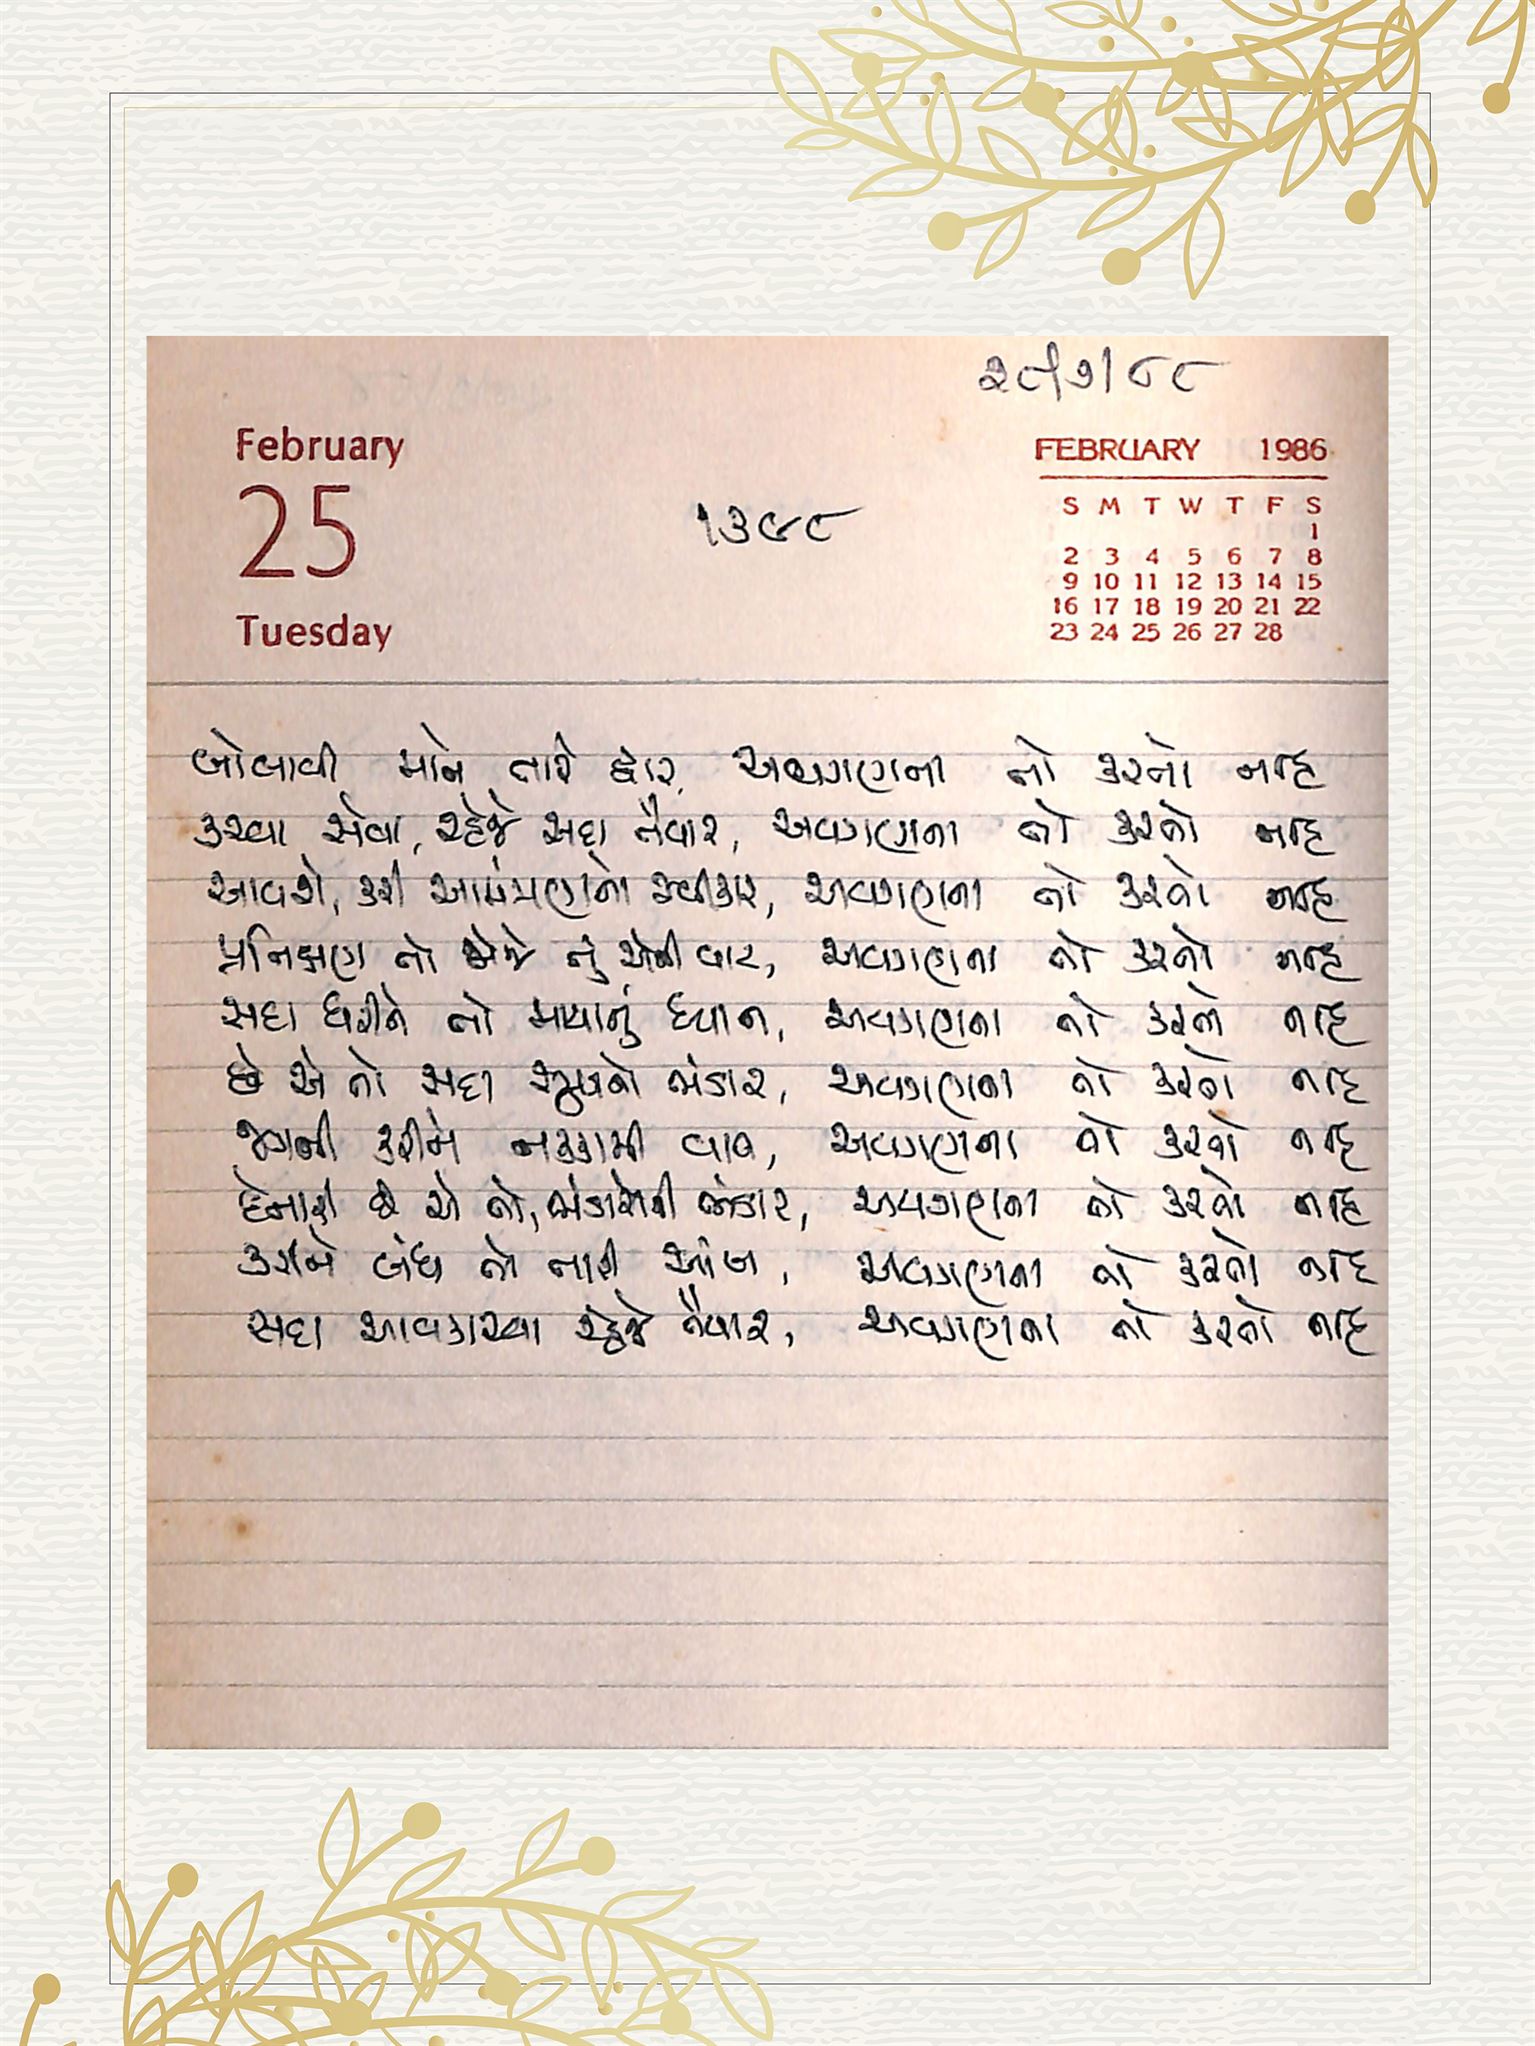 ૨૮/૭/૮૮
February
25
Tuesday
FEBRUARY 1986
S M T W T F S
1
2 3 4 5 6 7 8
9 10 11 12 13 14 15
16 17 18 19 20 21 22
23 24 25 26 27 28
૧૩૯૮
બોલાવી માને તારે દ્વાર, અવગણના તો કરતો નહિ
કરવા સેવા, રહેજે સદા તૈયાર, અવગણના તો કરતો નહિ
આવશે, કરી આમંત્રણનો સ્વીકાર, અવગણના તો કરતો નહિ
પ્રતિક્ષણ તો જોજે તું એની વાટ, અવગણના તો કરતો નહિ
સદા ધરીને તો માયાનું ધ્યાન, અવગણના તો કરતો નહિ
છે એ તો સદા સુખનો ભંડાર, અવગણના તો કરતો નહિ
જગની કરીને નકામી વાત, અવગણના તો કરતો નહિ
દેનારી છે એ તો, ભંડારોની ભંડાર, અવગણના તો કરતો નહિ
કરીને બંધ તો તારી આંખ, અવગણના તો કરતો નહિ
સદા આવકારવા રહેજે તૈયાર, અવગણના તો કરતો નહિ